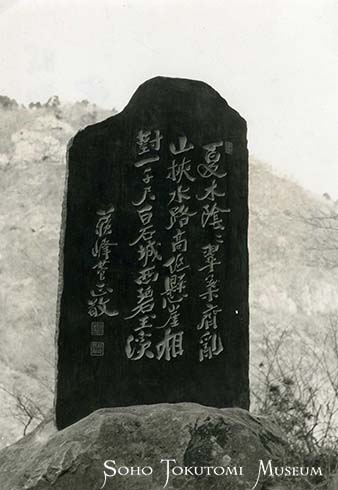 夏木陰〻翠齊亂
山挾水路高低懸崖相
對一千尺白石城西碧玉溪
蘇峰菅正敬
SOHO TOKUTOMI MUSEUM